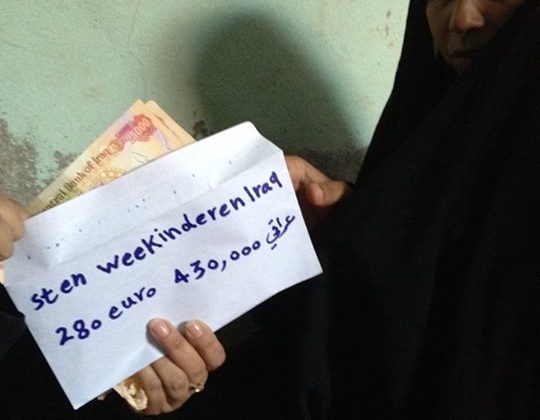 Central Bank of Iraq
25000
sten weekinderen Iraq
280 euro 430,000 عراقي